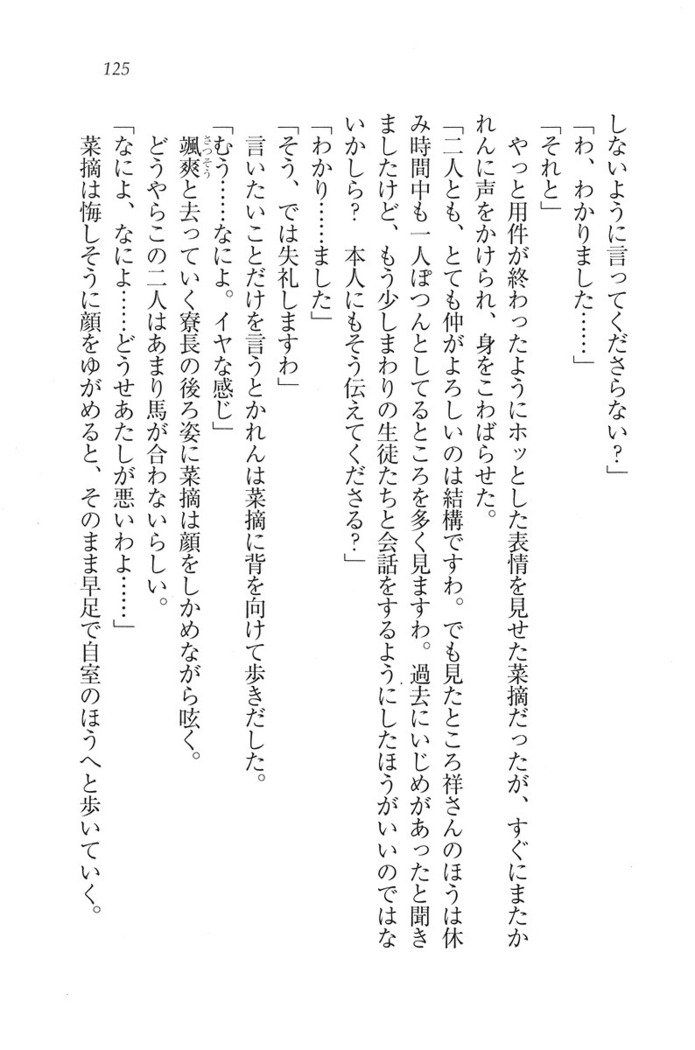 125
しないように言ってくださらない？」
「わ、わかりました……」
「それと」
やっと用件が終わったようにホッとした表情を見せた菜摘だったが、すぐにまたか
れんに声をかけられ、身をこわばらせた。
「二人とも、とても仲がよろしいのは結構ですわ。でも見たところ祥さんのほうは休
み時間中も一人ぽつんとしてるところを多く見ますわ。過去にいじめがあったと聞き
ましたけど、もう少しまわりの生徒たちと会話をするようにしたほうがいいのではな
いかしら？　本人にもそう伝えてくださる？」
「わかり……ました」
「そう、では失礼しますわ」
言いたいことだけを言うとかれんは菜摘に背を向けて歩きだした。
「むう……なによ。イヤな感じ」
颯爽と去っていく寮長の後ろ姿に菜摘は顔をしかめながら呟く。
さっそう
どうやらこの二人はあまり馬が合わないらしい。
「なによ、なによ……どうせあたしが悪いわよ……」
菜摘は悔しそうに顔をゆがめると、そのまま早足で自室のほうへと歩いていく。